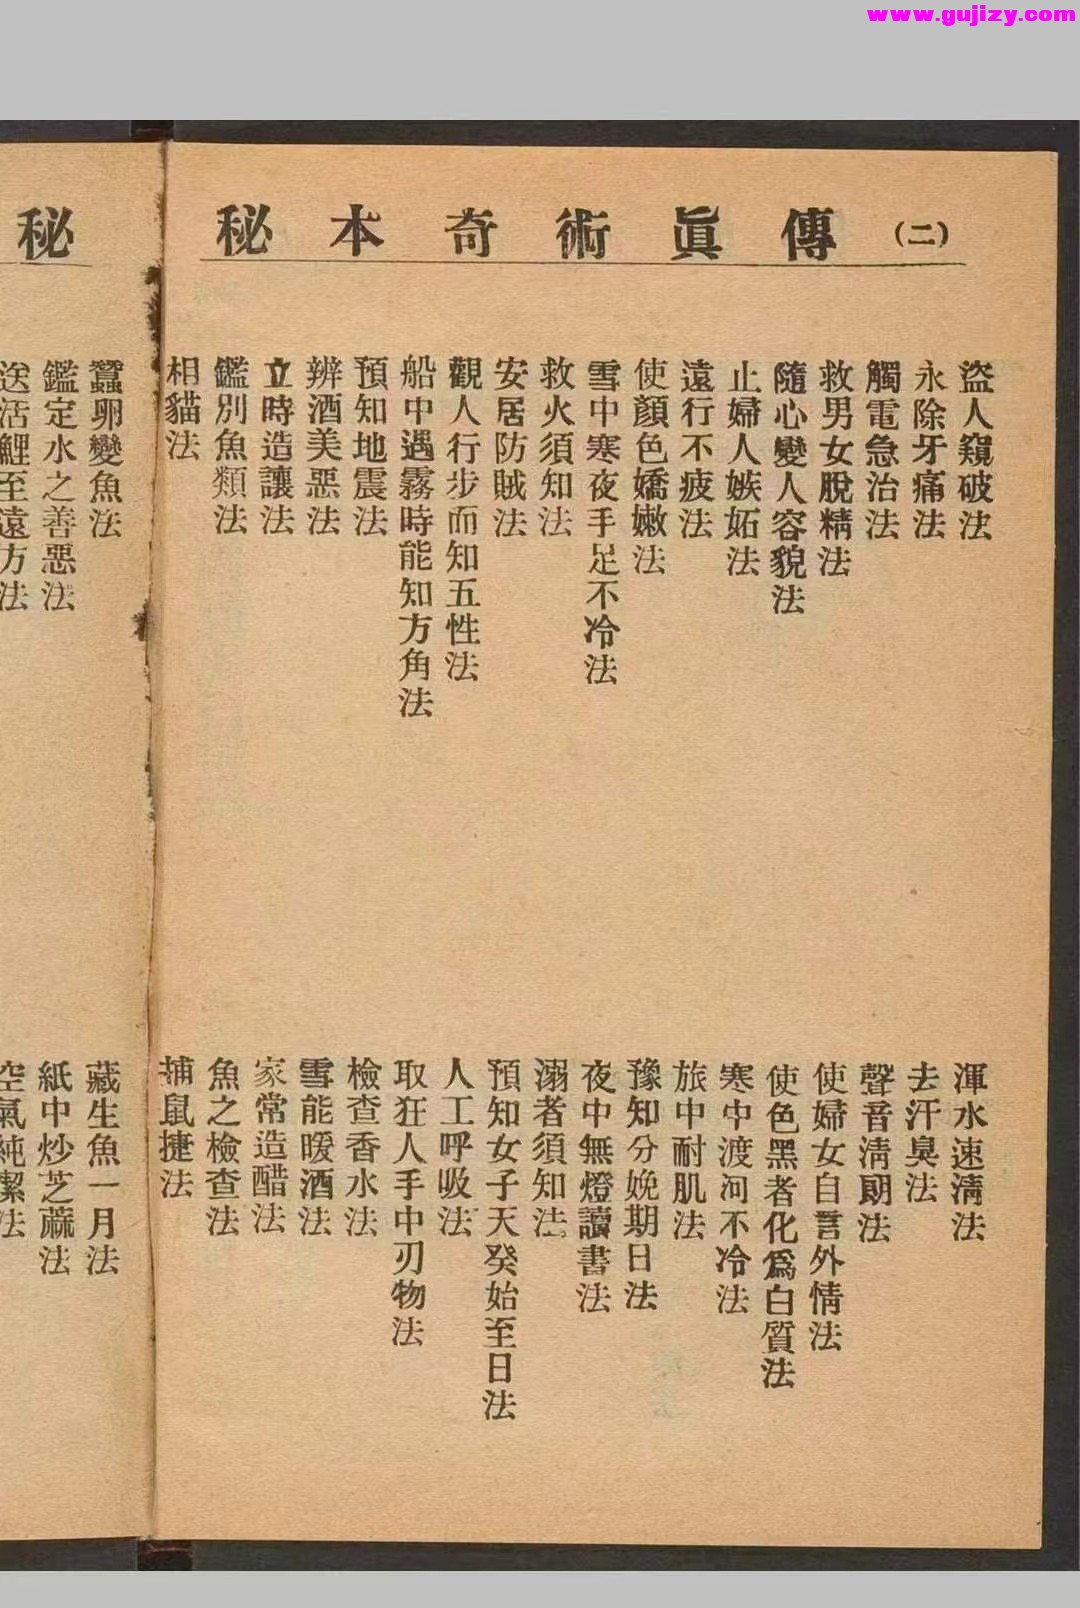 www.gujizy.com
秘本奇術眞傳 (二)
盜人窺破法
永除牙痛法
觸電急治法
救男女脫精法
隨心變人容貌法
止婦人嫉妬法
遠行不疲法
使顏色嬌嫩法
雪中寒夜手足不冷法
救火須知法
安居防賊法
觀人行步而知五性法
船中遇霧時能知方角法
預知地震法
辨酒美惡法
立時造讓法
鑑別魚類法
相貓法
渾水速淸法
去汗臭法
聲音淸朗法
使婦女自言外情法
使色黑者化爲白質法
寒中渡河不冷法
旅中耐肌法
豫知分娩期日法
夜中無燈讀書法
溺者須知法
預知女子天癸始至日法
人工呼吸法
取狂人手中刃物法
檢查香水法
雪能暖酒法
家常造醋法
魚之檢查法
捕鼠捷法
秘
蠶卵變魚法
鑑定水之善惡法
送活鯉至遠方法
藏生魚一月法
紙中炒芝蔴法
空氣純潔法